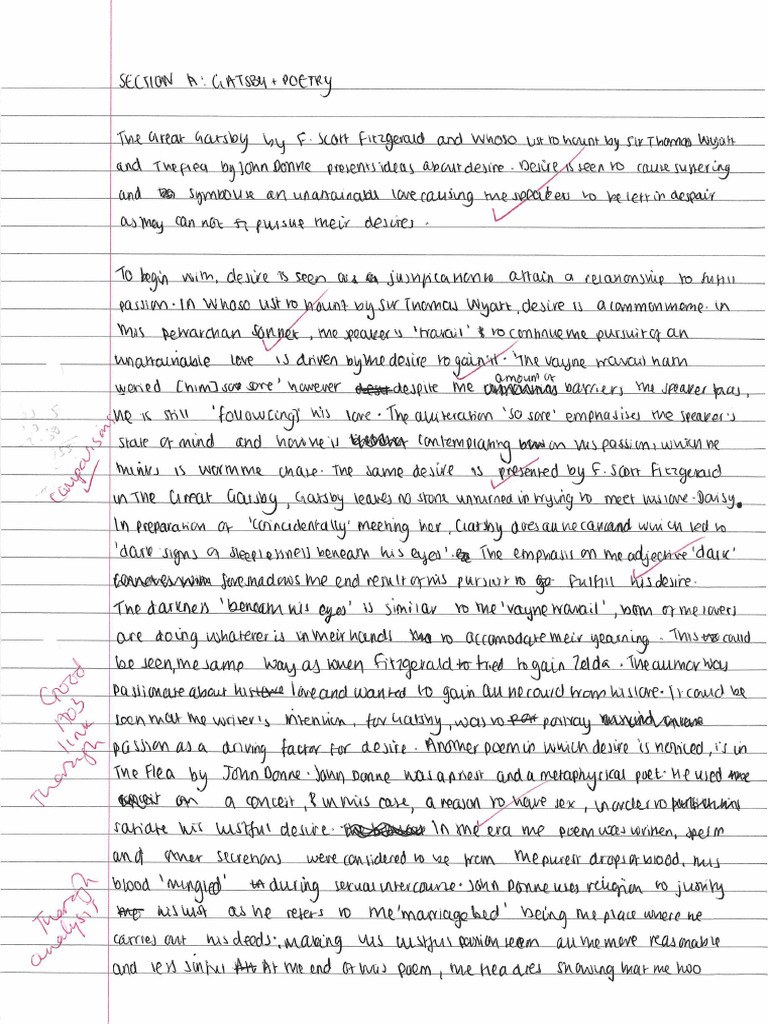 SECTION A: GATSBY + POETRY
The Great Gatsby by F. Scott Fitzgerald and Whoso list to hount by Sir Thomas Wyatt
and The Flea by John Donne presents ideas about desire. Desire is seen to cause suffering
and symbolise an unattainable love causing the speakers to be left in despair
as they can not pursue their desires.
To begin with, desire is seen as justification to attain a relationship to fulfil
passion. In Whoso list to hount by Sir Thomas Wyatt, desire is a common theme. In
this petrarchan sonnet, the speaker's 'travail' to continue the pursuit of an
unattainable love is driven by the desire to gain it. 'The vayne travail hath
weried [him] so sore' however despite the amount of barriers the speaker faces,
he is still 'follow[ing]' his love. The alliteration 'so sore' emphasises the speaker's
state of mind and how he is contemplating on his passion, which he
thinks is worth the chase. The same desire is presented by F. Scott Fitzgerald
in The Great Gatsby, Gatsby leaves no stone unturned in trying to meet his love - Daisy.
In preparation of 'coincidentally' meeting her, Gatsby does all he can and which led to
'dark signs of sleeplessness beneath his eyes'. The emphasis on the adjective 'dark'
foreshadows the end result of his pursuit to fulfill his desire.
The darkness 'beneath his eyes' is similar to the 'vayne travail', both of the lovers
are doing whatever is in their hands to accomodate their yearning. This could
be seen, the same way as when Fitzgerald tried to gain Zelda. The author was
passionate about his love and wanted to gain all he could from his love. It could be
seen that the writer's intention, for Gatsby, was to portray
passion as a driving factor for desire. Another poem in which desire is noticed, is in
The Flea by John Donne. John Donne was a priest and a metaphysical poet. He used
a conceit, in this case, a reason to have sex, in order to
satiate his lustful desire. In the era the poem was written, sperm
and other secretions were considered to be from the purest drops of blood, this
blood 'mingled' during sexual intercourse. John Donne uses religion to justify
his lust as he refers to the 'marriage bed' being the place where he
carries out his deeds, making his lustful passion seem all the more reasonable
and less sinful. At the end of this poem, the flea dies showing that the two
comparisons
Good
AO3
link
Thorough
Thorough
analysis